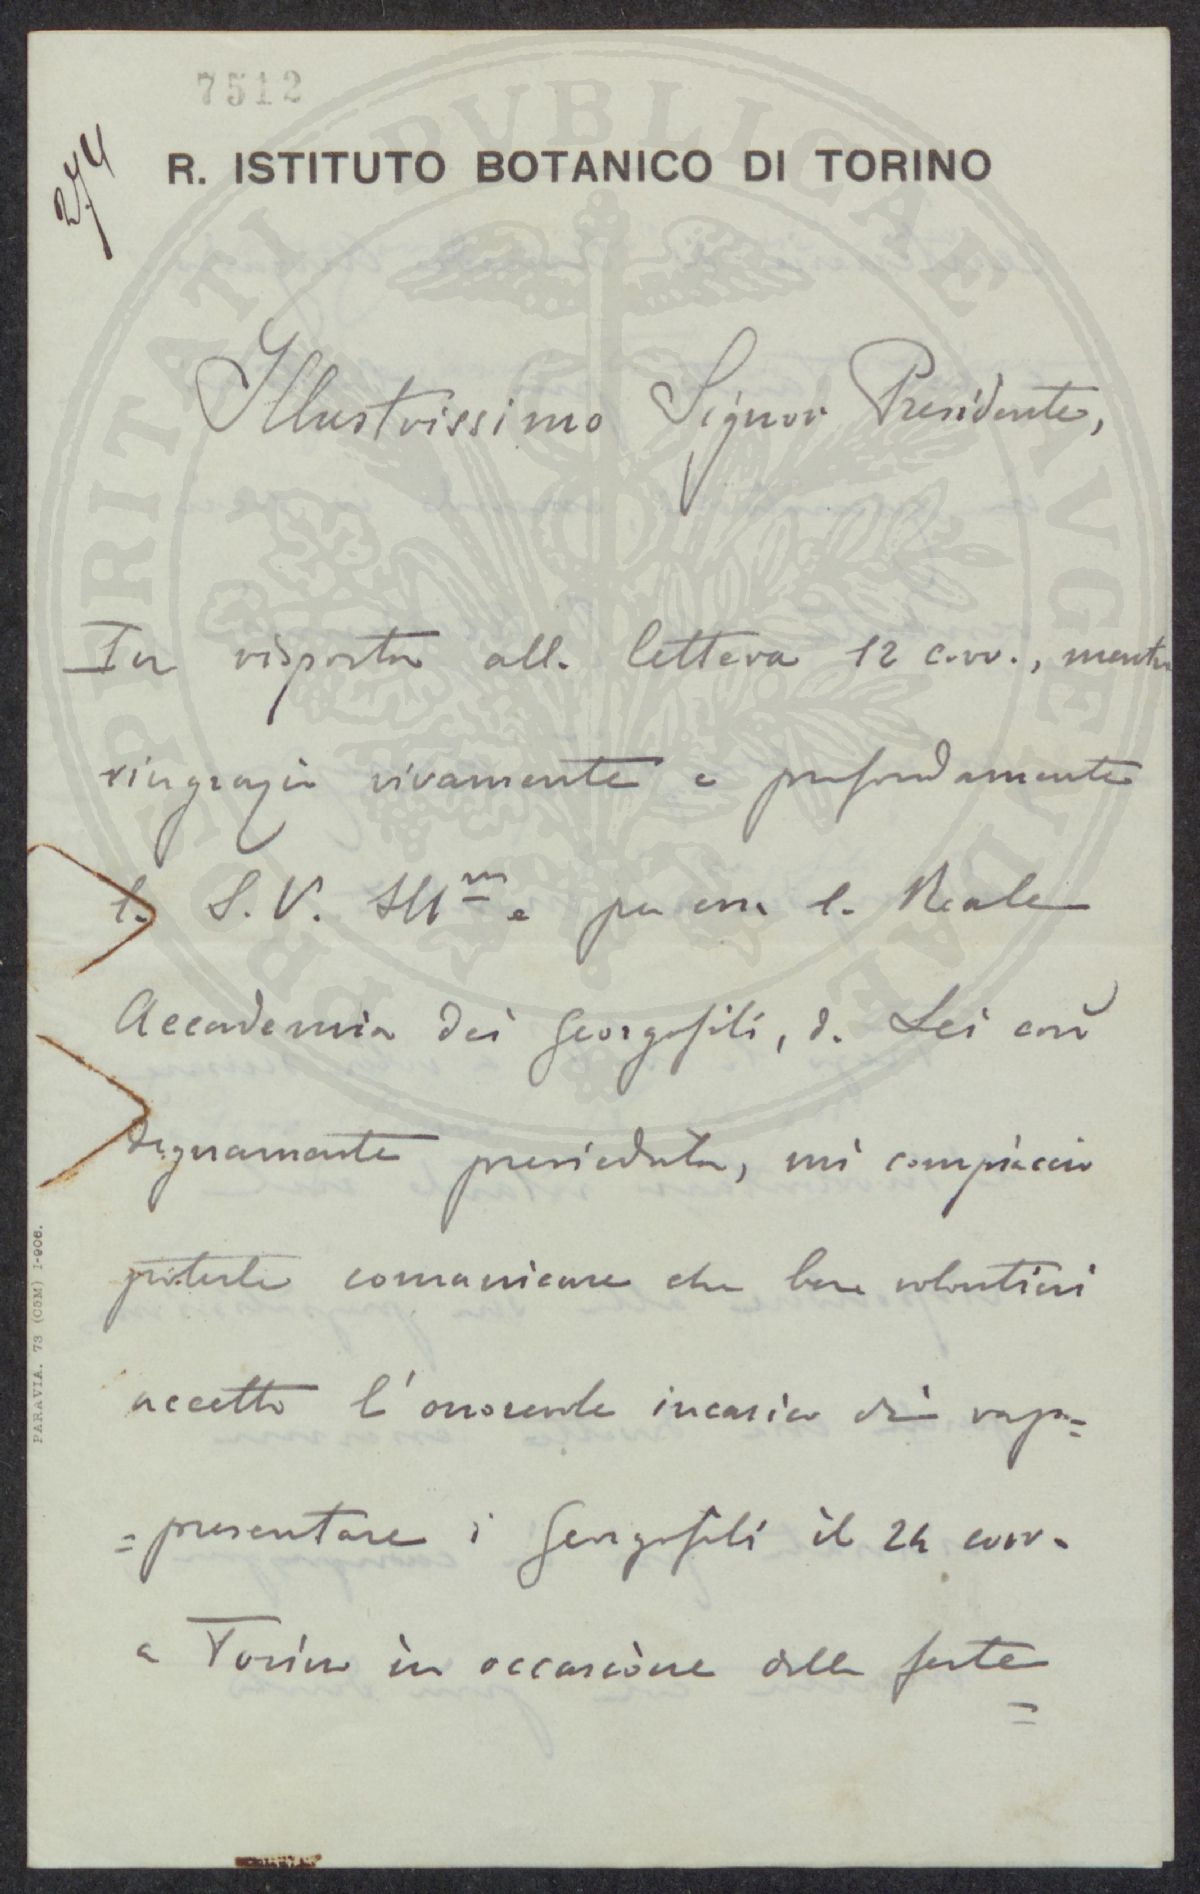 7512
274
R. ISTITUTO BOTANICO DI TORINO
Illustrissimo Signor Presidente,
In risposta alla lettera 12 corr., mentre
ringrazio vivamente e profondamente
la S.V. Ill.ma e per essa la Reale
Accademia dei Georgofili, da Lei così
degnamente presieduta, mi compiaccio
poterle comunicare che ben volentieri
accetto l'onorevole incarico di rap=
=presentare i Georgofili il 24 corr.
a Torino in occasione delle feste
PARAVIA. 73 (COM) 1-906.
PROSPERITATI PVBLICAE AVGENDAE